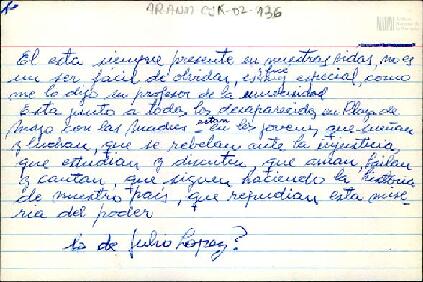 ARANA CJK-02-136
El esta siempre presente en nuestras vidas, no es
un ser fácil de olvidar, es muy especial, como
me lo dijo un profesor de la
Esta junto a todos los desaparecidos en Plaza de
Mayo con las Madres estan en los jovenes que sueñan
y luchan, que se rebelan ante la injusticia,
que estudian y discuten, que aman, bailan
y cantan, que siguen haciendo la historia
de nuestro país, que repudian esta mise-
ria del poder
lo de Julio Lopez?